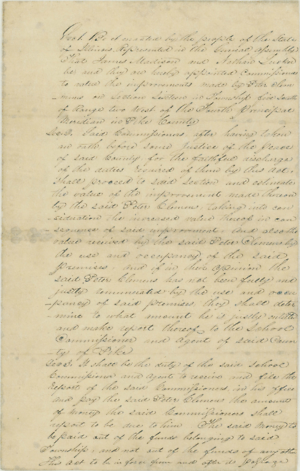 Sec 1. Be it enacted by the people of the State
of Illinois Represented in the General Assembly
That James Madison and Nathan
be and they are hereby appointed Commissioners
to value the improvements made by Peter Clem
mons on section Sixteen in Township five South
of Range two West of the Fourth Principal
Meridian in Pike County
Sec 2. Said Commissioners after having taken
an oath before some Justice of the Peace
of said County for the faithful discharge
of the duties required of them by this Act
Shall proceed to said Section and estimate
the value of the improvement made thereon
by the said Peter Clemons taking into con
sideration the increased value thereof in con
sequence of said improvement and also the
value received by the said Peter Clemons by
the use and occupancy of the said
Premises and if in their opinion the
said Peter Clemons has not been fully and
justly remunerated by the use and occu
pancy of said premises they shall deter
mine to what amount he is justly entitled
and make report thereof to the School
Commissioner and Agent of said Coun
ty of Pike
Sec 3. It shall be the duty of the said School
Commissioner and Agent to receive and file the
Report of the said Commissioners in his office
and pay the said Peter Clemons the amount
of money the said Commissioners shall
report to be due to him The said money to
be paid out of the funds belonging to said
Township and not out of the funds of any other
This Act to be in force from and after its passage